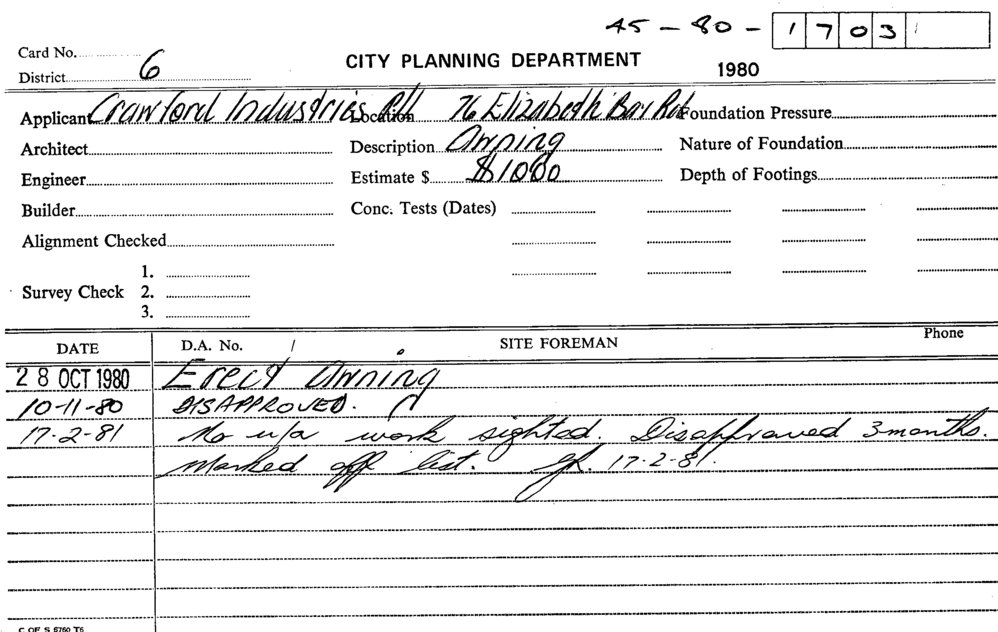 45-80-1703
Card No.
District 6
CITY PLANNING DEPARTMENT
1980
Applicant Crawford Industries P/L Location 76 Elizabeth Bay Rd Foundation Pressure
Architect Description Awning Nature of Foundation
Engineer Estimate $ $1000 Depth of Footings
Builder Conc. Tests (Dates)
Alignment Checked
1.
Survey Check 2.
3.
DATE D.A. No. / SITE FOREMAN Phone
28 OCT 1980 Erect Awning
10-11-80 DISAPPROVED.
17-2-81 No u/a work sighted. Disapproved 3 months.
Marked off list. 17-2-81.
C OF S 6760 T6